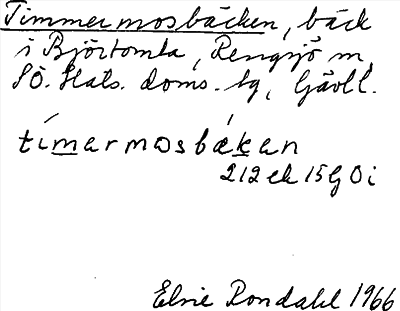 Timmermosbäcken, bäck
i Björtomta, Rengsjö sn,
SÖ. Häls. doms. tg, Gävl l.
tímarmosbækan
212 ek 15G Öi
Elvie Rondahl 1966